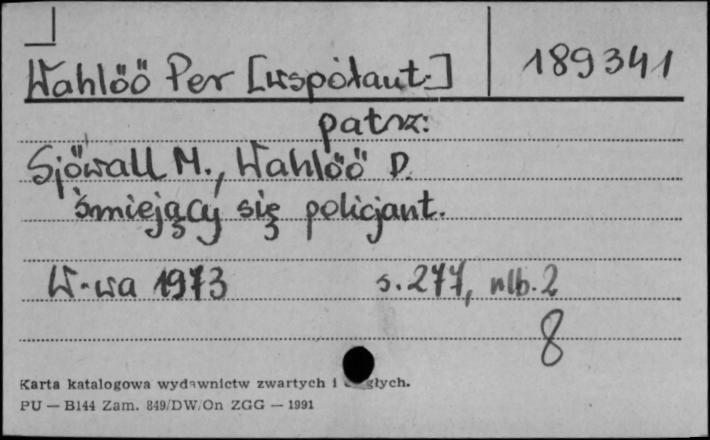 Wahlöö Per [współaut.] 189341
patrz:
Sjöwall M., Wahlöö P.
Śmiejący się policjant.
W-wa 1973 s. 277, nlb. 2
8
Karta katalogowa wydawnictw zwartych i
PU — B144 Zam. 849/DW/On ZGG — 1991